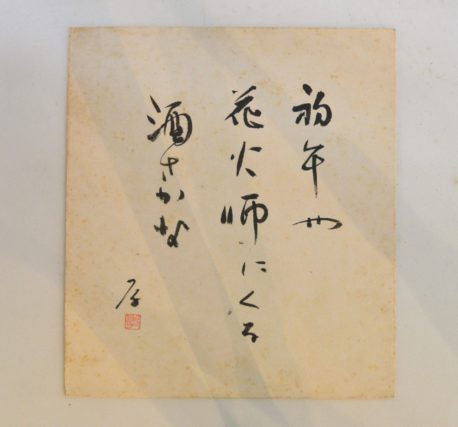 初午や
花火師にくる
酒さかな